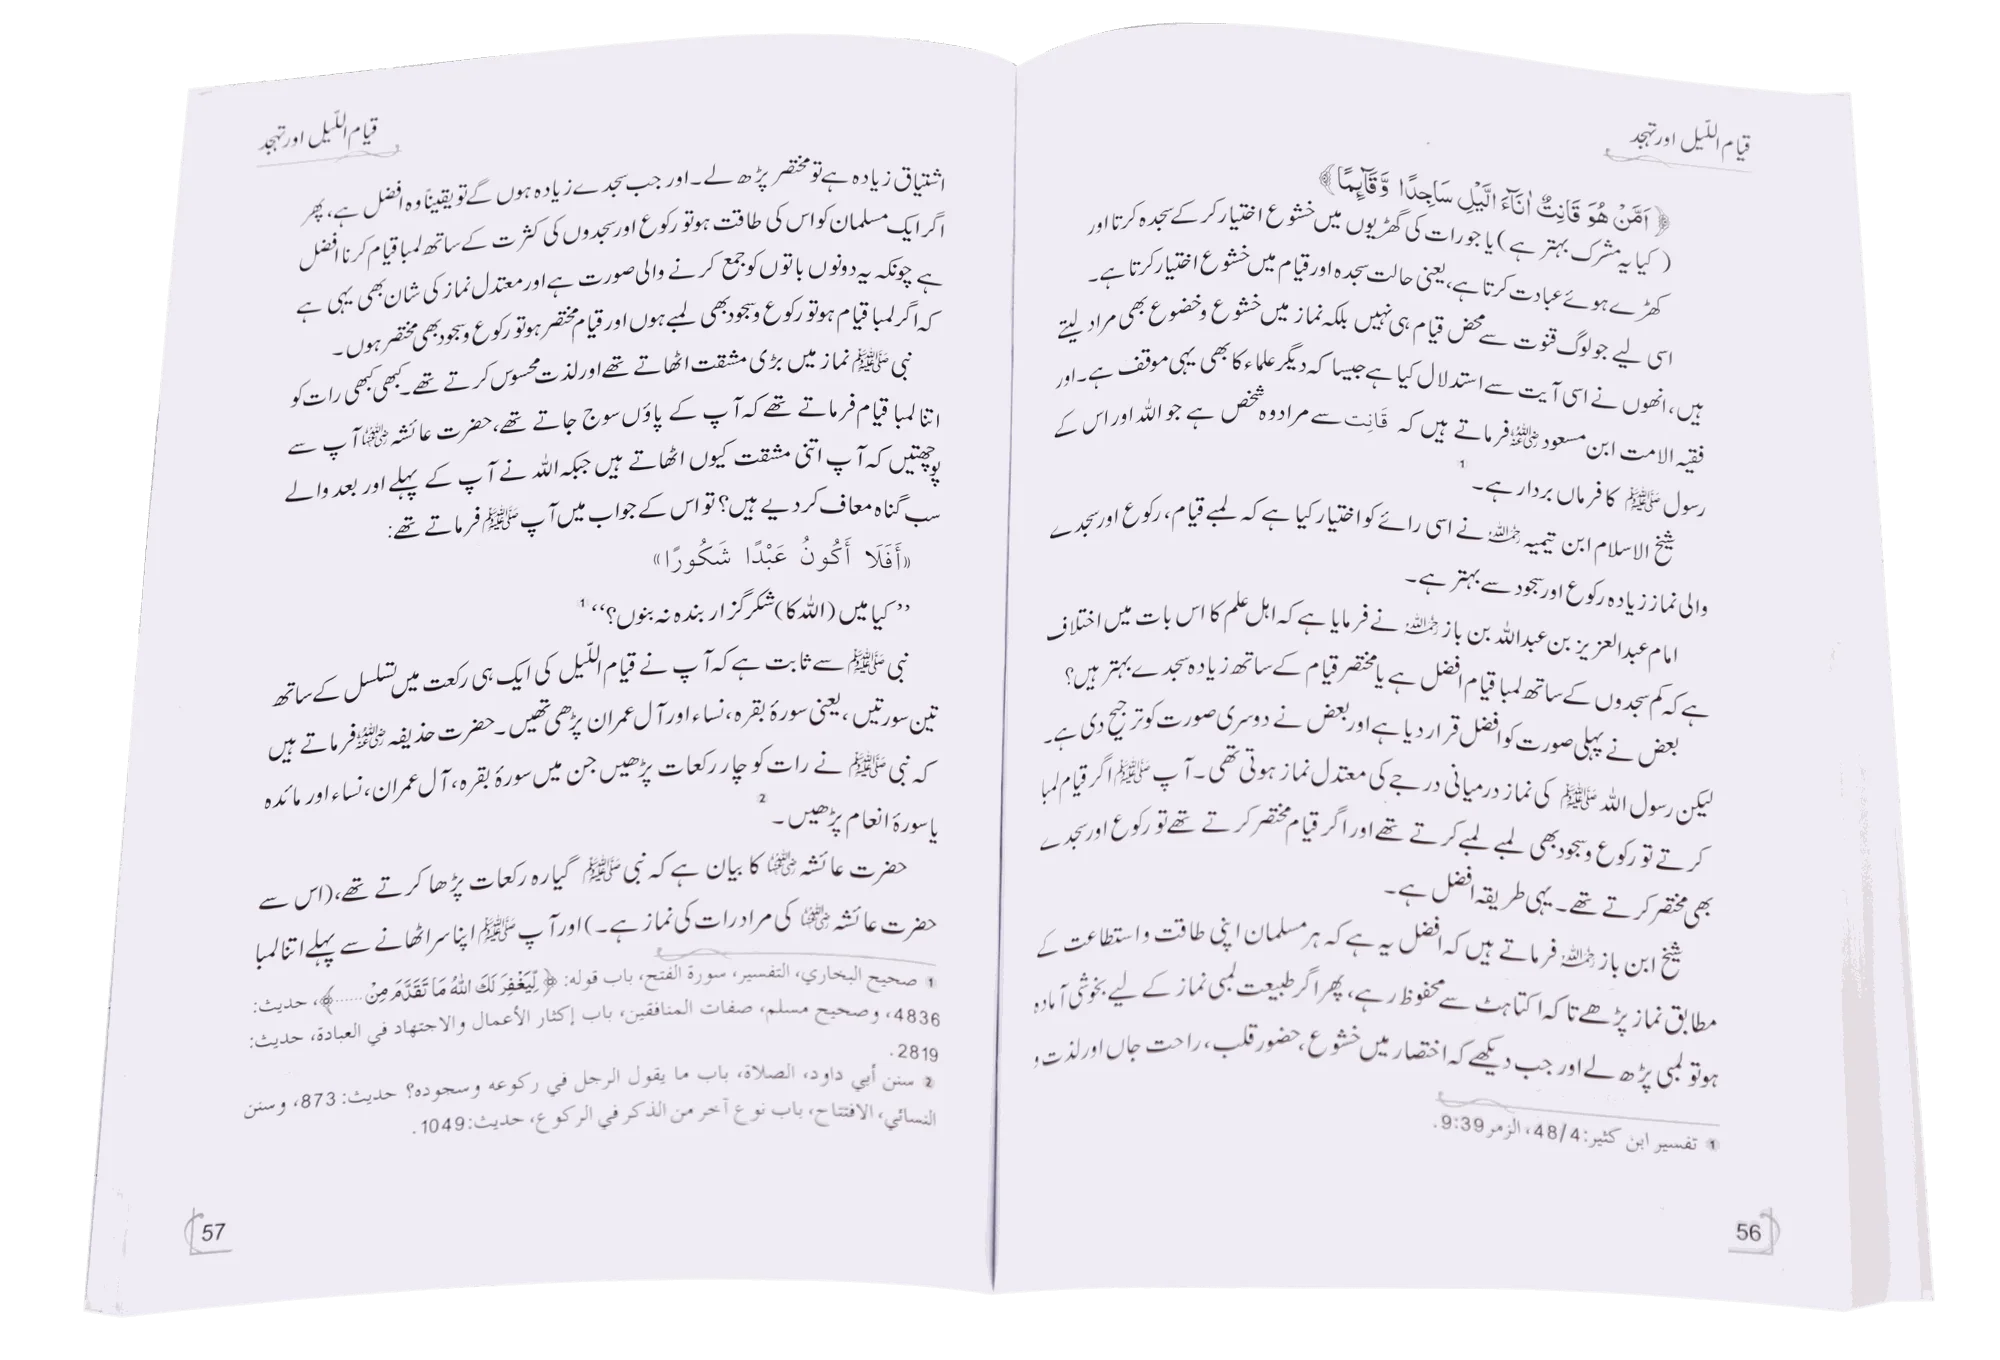 قیام اللّیل اور تہجد
﴿ اَمَّنْ هُوَ قَانِتٌ اٰنَآءَ الَّیْلِ سَاجِدًا وَّقَآىِٕمًا ﴾
( کیا یہ مشرک بہتر ہے ) یا جو رات کی گھڑیوں میں خشوع اختیار کر کے سجدہ کرتا اور
کھڑے ہوئے عبادت کرتا ہے، یعنی حالت سجدہ اور قیام میں خشوع اختیار کرتا ہے۔
اسی لیے جو لوگ قنوت سے محض قیام ہی نہیں بلکہ نماز میں خشوع و خضوع بھی مراد لیتے
ہیں، انھوں نے اسی آیت سے استدلال کیا ہے جیسا کہ دیگر علماء کا بھی یہی موقف ہے۔ اور
فقیہ الامت ابن مسعود رضی اللہ عنہ فرماتے ہیں کہ قَانِت سے مراد وہ شخص ہے جو اللہ اور اس کے
رسول ﷺ کا فرماں بردار ہے۔ 1
شیخ الاسلام ابن تیمیہ رحمہ اللہ نے اسی رائے کو اختیار کیا ہے کہ لمبے قیام، رکوع اور سجدے
والی نماز زیادہ رکوع اور سجود سے بہتر ہے۔
امام عبدالعزیز بن عبداللہ بن باز رحمہ اللہ نے فرمایا ہے کہ اہل علم کا اس بات میں اختلاف
ہے کہ کم سجدوں کے ساتھ لمبا قیام افضل ہے یا مختصر قیام کے ساتھ زیادہ سجدے بہتر ہیں؟
بعض نے پہلی صورت کو افضل قرار دیا ہے اور بعض نے دوسری صورت کو ترجیح دی ہے۔
لیکن رسول اللہ ﷺ کی نماز درمیانی درجے کی معتدل نماز ہوتی تھی۔ آپ ﷺ اگر قیام لمبا
کرتے تو رکوع و سجود بھی لمبے لمبے کرتے تھے اور اگر قیام مختصر کرتے تھے تو رکوع اور سجدے
بھی مختصر کرتے تھے۔ یہی طریقہ افضل ہے۔
شیخ ابن باز رحمہ اللہ فرماتے ہیں کہ افضل یہ ہے کہ ہر مسلمان اپنی طاقت و استطاعت کے
مطابق نماز پڑھے تا کہ اکتاہٹ سے محفوظ رہے، پھر اگر طبیعت لمبی نماز کے لیے بخوشی آمادہ
ہو تو لمبی پڑھ لے اور جب دیکھے کہ اختصار میں خشوع، حضور قلب، راحت جاں اور لذت و
1 تفسير ابن كثير: 48/4، الزمر 9:39.
56
قیام اللّیل اور تہجد
اشتیاق زیادہ ہے تو مختصر پڑھ لے۔ اور جب سجدے زیادہ ہوں گے تو یقیناً وہ افضل ہے، پھر
اگر ایک مسلمان کو اس کی طاقت ہو تو رکوع اور سجدوں کی کثرت کے ساتھ لمبا قیام کرنا افضل
ہے چونکہ یہ دونوں باتوں کو جمع کرنے والی صورت ہے اور معتدل نماز کی شان بھی یہی ہے
کہ اگر لمبا قیام ہو تو رکوع و سجود بھی لمبے ہوں اور قیام مختصر ہو تو رکوع و سجود بھی مختصر ہوں۔
نبی ﷺ نماز میں بڑی مشقت اٹھاتے تھے اور لذت محسوس کرتے تھے۔ کبھی کبھی رات کو
اتنا لمبا قیام فرماتے تھے کہ آپ کے پاؤں سوج جاتے تھے، حضرت عائشہ رضی اللہ عنہا آپ سے
پوچھتیں کہ آپ اتنی مشقت کیوں اٹھاتے ہیں جبکہ اللہ نے آپ کے پہلے اور بعد والے
سب گناہ معاف کر دیے ہیں؟ تو اس کے جواب میں آپ ﷺ فرماتے تھے:
«أَفَلَا أَكُونُ عَبْدًا شَكُورًا»
’’کیا میں (اللہ کا) شکر گزار بندہ نہ بنوں؟‘‘ 1
نبی ﷺ سے ثابت ہے کہ آپ نے قیام اللّیل کی ایک ہی رکعت میں تسلسل کے ساتھ
تین سورتیں، یعنی سورۂ بقرہ، نساء اور آل عمران پڑھی تھیں۔ حضرت حذیفہ رضی اللہ عنہ فرماتے ہیں
کہ نبی ﷺ نے رات کو چار رکعات پڑھیں جن میں سورۂ بقرہ، آل عمران، نساء اور مائدہ
یا سورۂ انعام پڑھیں۔ 2
حضرت عائشہ رضی اللہ عنہا کا بیان ہے کہ نبی ﷺ گیارہ رکعات پڑھا کرتے تھے، (اس سے
حضرت عائشہ رضی اللہ عنہا کی مراد رات کی نماز ہے۔) اور آپ ﷺ اپنا سر اٹھانے سے پہلے اتنا لمبا
1 صحيح البخاري، التفسير، سورة الفتح، باب قوله: ﴿ لِّيَغْفِرَ لَكَ اللّٰهُ مَا تَقَدَّمَ مِنْ ......﴾، حديث:
4836، وصحيح مسلم، صفات المنافقين، باب إكثار الأعمال والاجتهاد في العبادة، حديث:
2819.
2 سنن أبي داود، الصلاة، باب ما يقول الرجل في ركوعه وسجوده؟ حديث: 873، وسنن
النسائي، الافتتاح، باب نوع آخر من الذكر في الركوع، حديث: 1049.
57